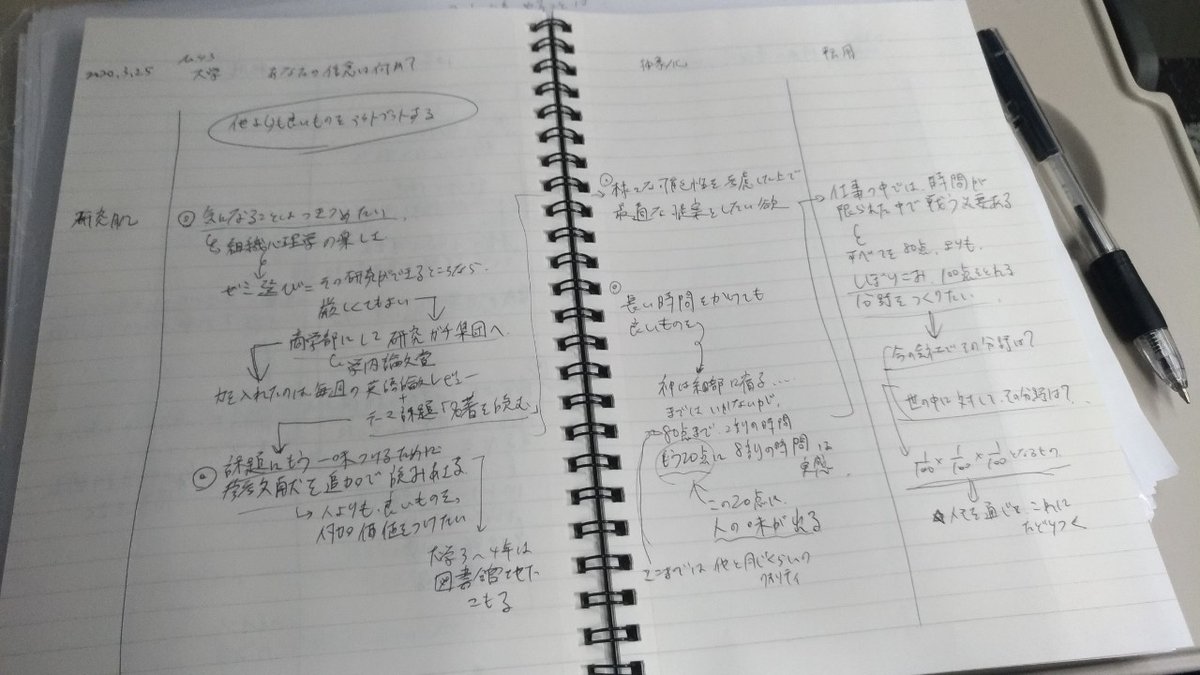 2020.3.25
No.43
大学
あなたの信念は何か?
他よりも良いものをアウトプットする
研究肌
気になることはつきつめたい
組織心理学の楽しさ
ゼミ選び=その研究ができるところなら
厳しくてもよい
商学部にして研究ガチ集団へ
学内論文賞
力を入れたのは毎週の英語論文レビュー
+
テーマ課題「名著を読む」
課題にもう一味つけるために
参考文献を追加で読みあさる
人よりも良いものを、
付加価値をつけたい
大学3〜4年は
図書館で地下
こもる
抽象化
様々な可能性を考慮した上で
最適な提案をしたい欲
長い時間をかけても
良いものを
神は細部に宿る....
まではいかないが、
80点まで、2割の時間
もう20点に8割の時間は
実感
この20点に、
人の味が出る
ここまでは他と同じくらいの
クオリティ
転用
仕事の中では、時間が
限られた中で戦う必要ある
すべてを80点、よりも、
しぼりこみ、100点をとれる
分野をつくりたい
今の会社でその分野は?
世の中に対して、その分野は?
1/100 × 1/100 × 1/100 となるもの
人生を通じて、これに
たどりつく